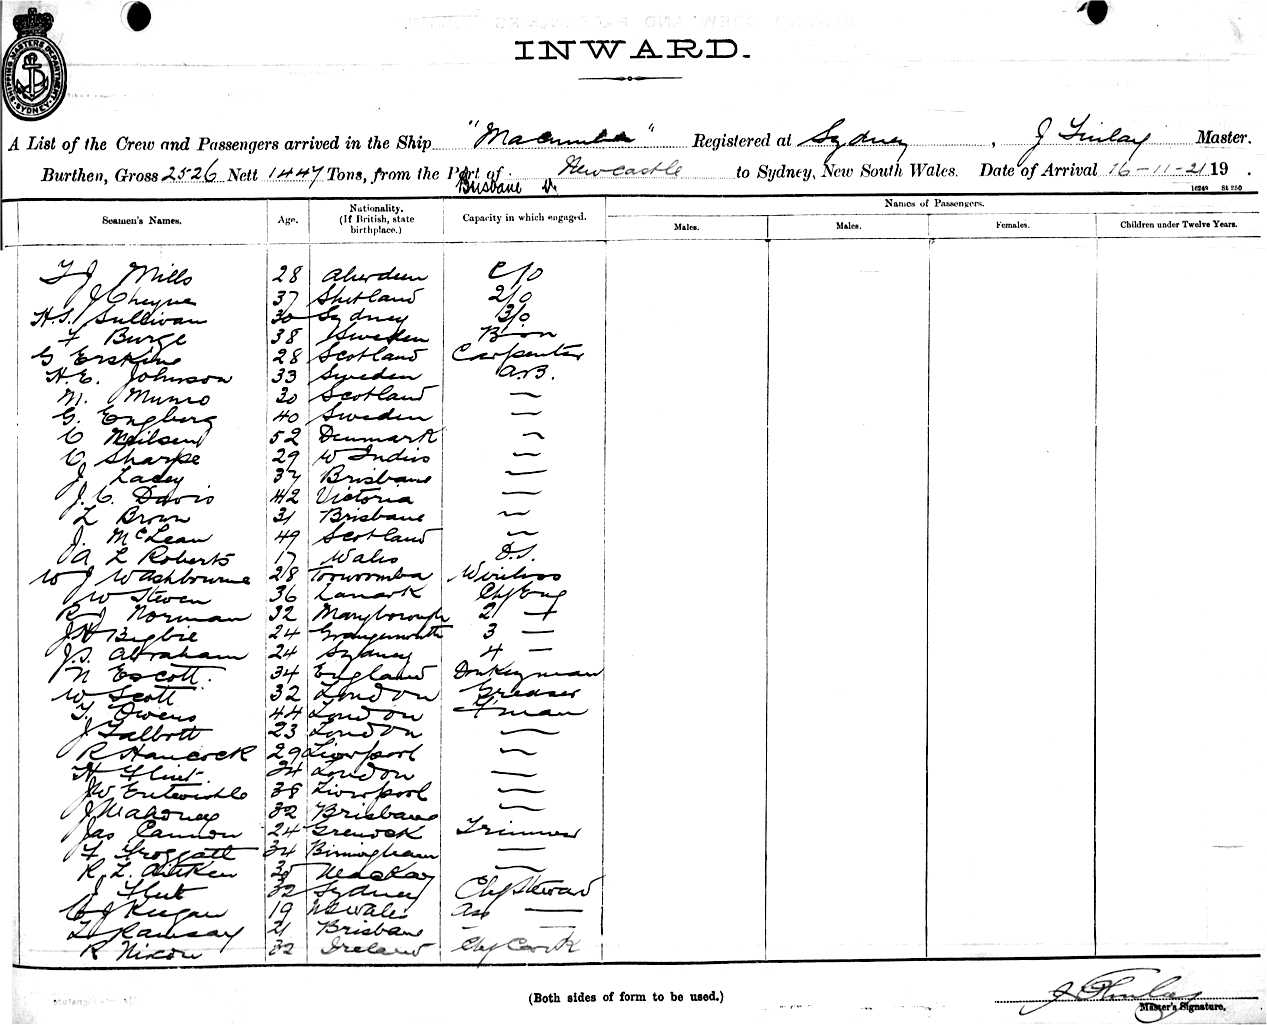 SHIPPING MASTERS DEPARTMENT SYDNEY
INWARD.
A List of the Crew and Passengers arrived in the Ship "Macumba" Registered at Sydney, J Finlay Master.
Burthen, Gross 2526 Nett 1447 Tons, from the Port of Newcastle to Sydney, New South Wales. Date of Arrival 16-11-21 19 .
Brisbane
16249 St 250
Seamen's Names. Age. Nationality. (If British, state birthplace.) Capacity in which engaged. Names of Passengers.
Males. Males. Females. Children under Twelve Years.
Mills 28 Aberdeen C/O
J Cheyne 37 Shetland 2/0
H.S. Sullivan 30 Sydney 3/0
F Burge 38 Sweden
G Erskine 28 Scotland Carpenter
H.E. Johnson 33 Sweden A.B.
M. Munro 30 Scotland —
G. Engberg 40 Sweden —
C Neilsen 52 Denmark —
C Sharpe 29 W Indies —
J Lacey 37 Brisbane —
J.C. Davis 42 Victoria —
L Brown 31 Brisbane —
J. McLean 49 Scotland —
A L Roberts 17 Wales O.S.
W J Washbourne 28 Toowoomba Wireless
W Steven 36 Lanark Chf Eng
R J Norman 32 Maryborough 2 —
J H Bigbie 24 Grangemouth 3 —
J.S. Abraham 24 Sydney 4 —
N Escott. 34 England Donkeyman
W Scott 32 London Greaser
T. Owens 44 London F'man
J Talbott 23 London —
R Hancock 29 Liverpool —
H Flint. 34 London —
J W Entwistle 38 Liverpool —
J Mahoney 32 Brisbane —
Jas Cannon 24 Greenock Trimmer
F Froggatt 34 Birmingham —
R. L. Aitken Mackay —
J Flut 32 Sydney Chf Steward
C J Keegan 19 N S Wales Ass —
L Ramsay 21 Brisbane
R Nixon 32 Ireland Chf Cook
(Both sides of form to be used.)
J Finlay
Master's Signature.